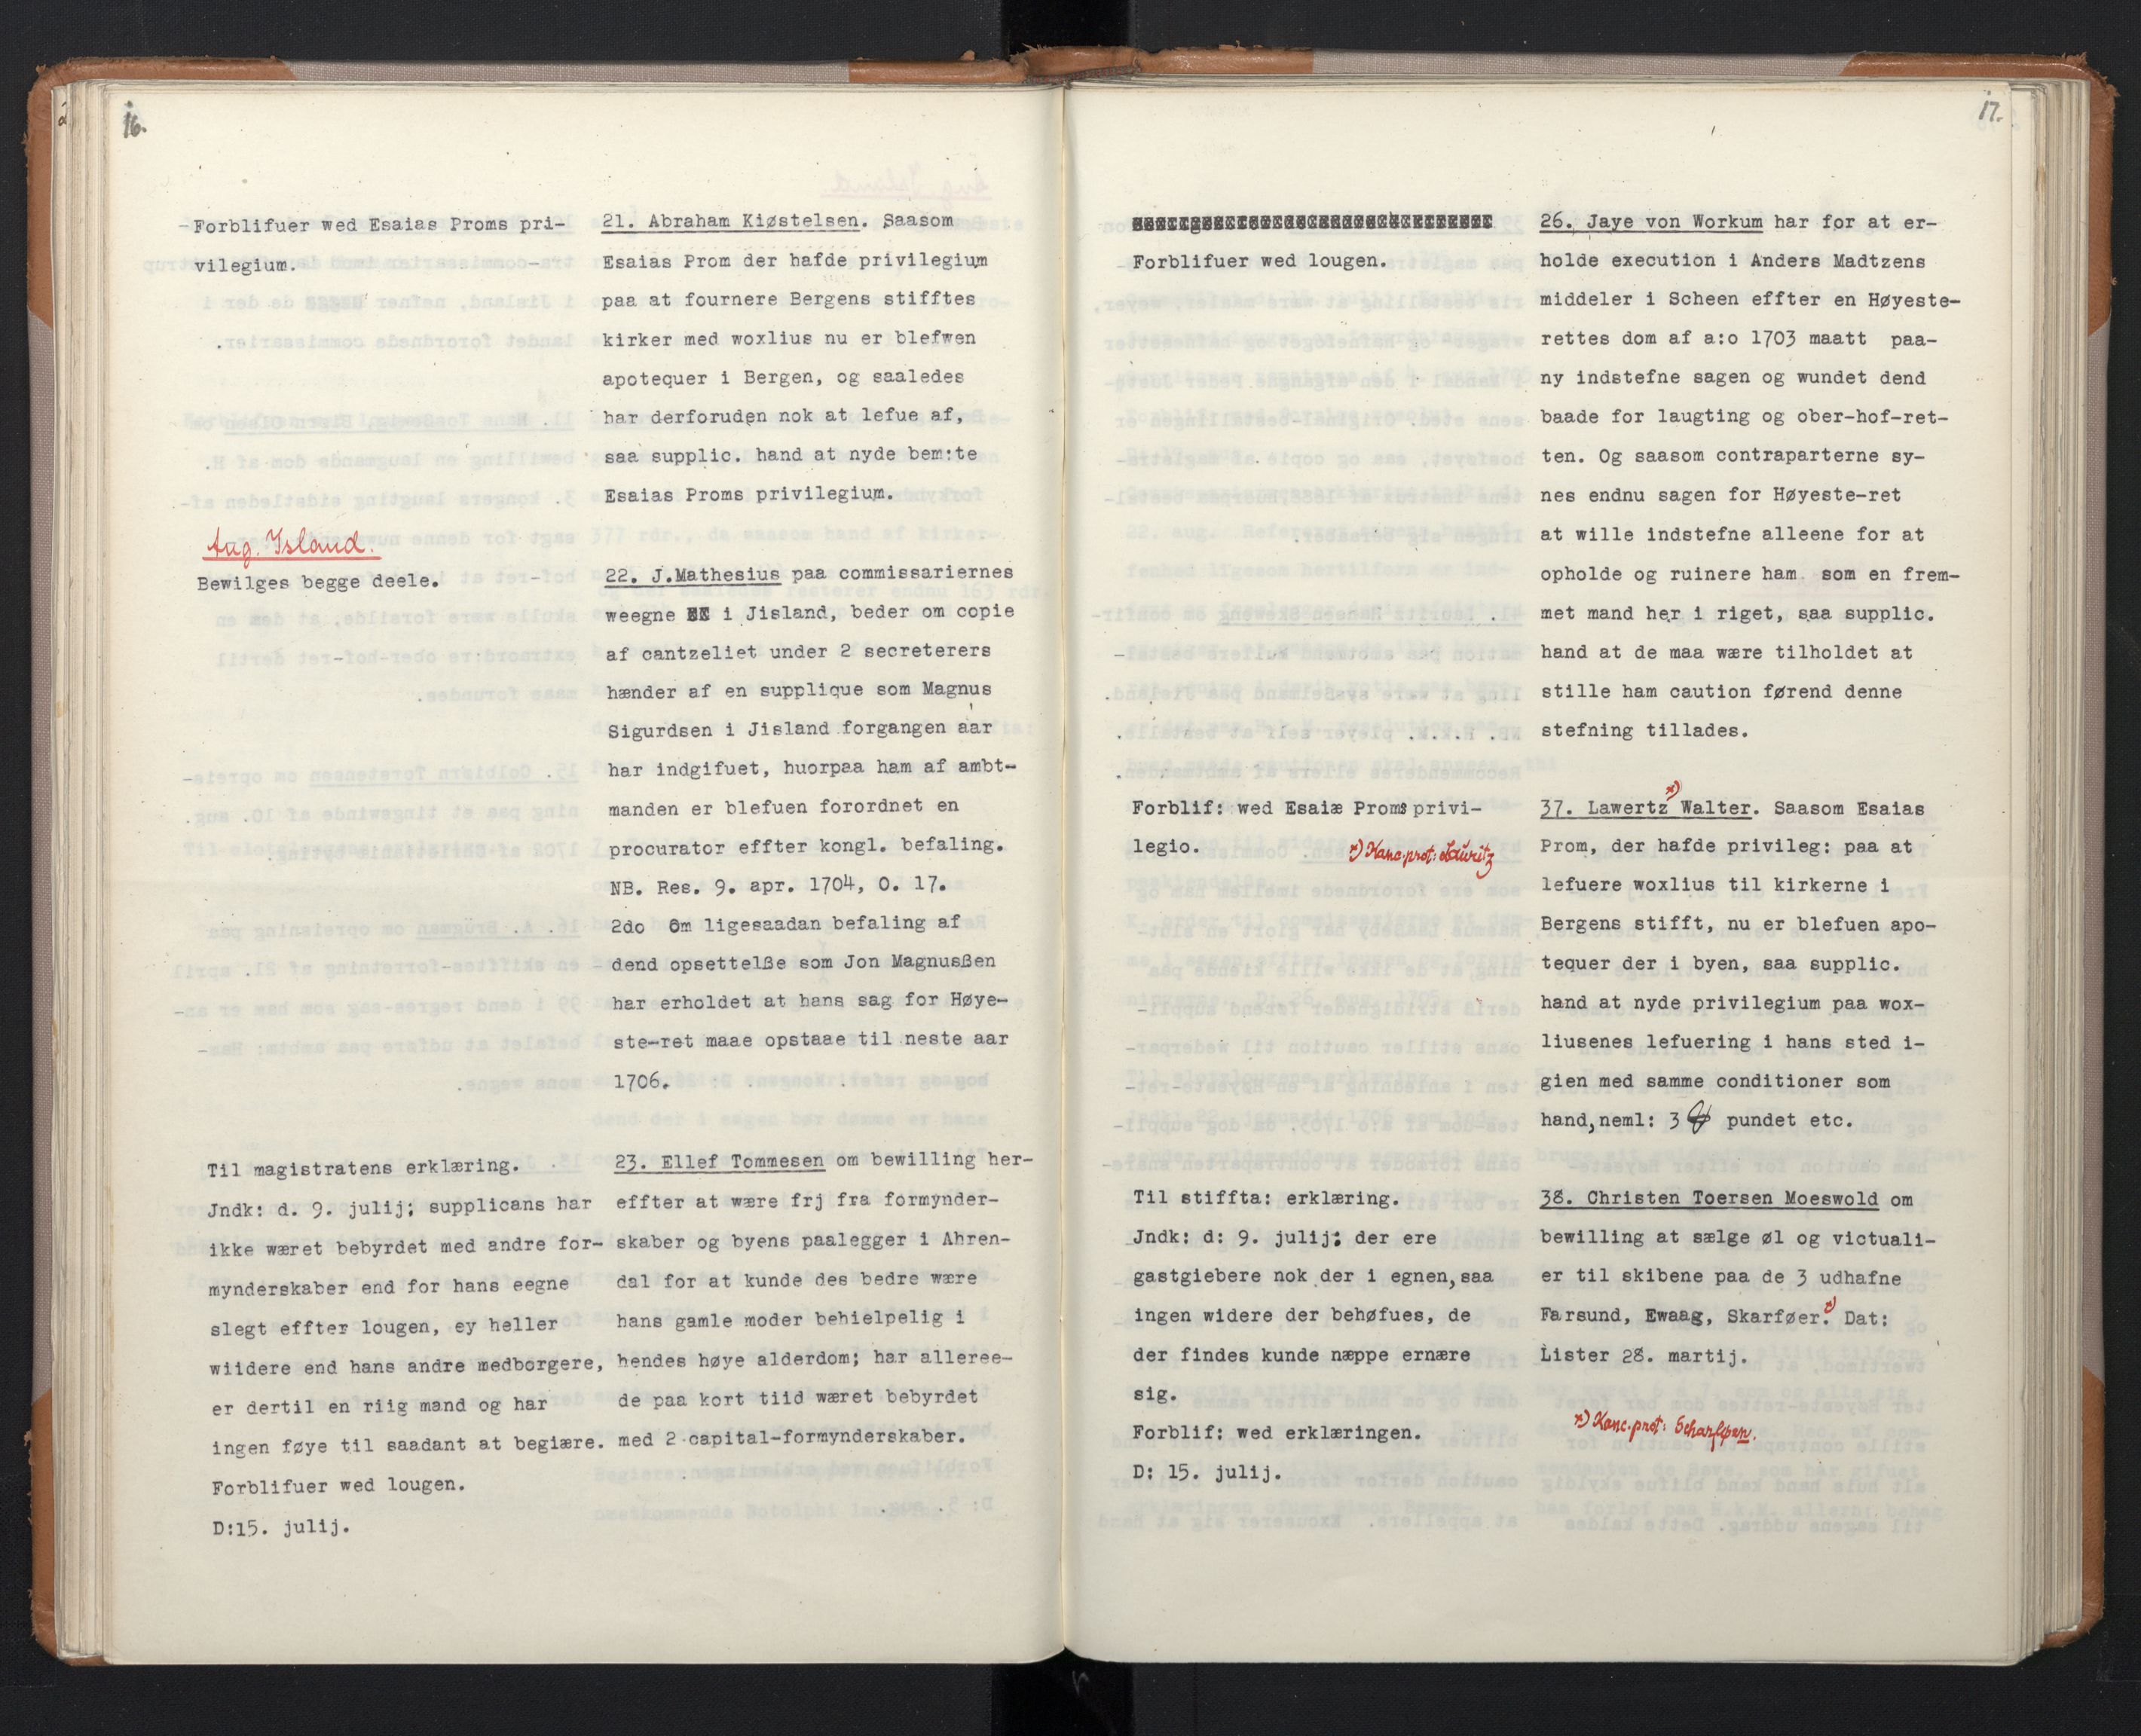 16.
Forblifuer wed Esaias Proms pri-
vilegium.
21. Abraham Kiøstelsen. Saasom
Esaias Prom der hafde privilegium
paa at fournere Bergens stifftes
kirker med woxlius nu er blefwen
apotequer i Bergen, og saaledes
har derforuden nok at lefue af,
saa supplic. hand at nyde bem:te
Esaias Proms privilegium.
Ang. Island.
Bewilges begge deele.
22. J.Mathesius paa commissariernes
weegne i Jisland, beder om copie
af cantzeliet under 2 secreterers
hænder af en supplique som Magnus
Sigurdsen i Jisland forgangen aar
har indgifuet, huorpaa ham af ambt-
manden er blefuen forordnet en
procurator effter kongl. befaling.
NB. Res. 9. apr. 1704, O. 17.
2do Om ligesaadan befaling af
dend opsettelße som Jon Magnusßen
har erholdet at hans sag for Høye-
ste-ret maae opstaae til neste aar
1706.
Til magistratens erklæring.
Jndk: d. 9. julij; supplicans har
ikke wæret bebyrdet med andre for-
mynderskaber end for hans eegne
slegt effter lougen, ey heller
wiidere end hans andre medborgere,
er dertil en riig mand og har
ingen føye til saadant at begiære.
Forblifuer wed lougen.
D:15. julij.
23. Ellef Tommesen om bewilling her-
effter at wære frj fra formynder-
skaber og byens paalegger i Ahren-
dal for at kunde des bedre wære
hans gamle moder behielpelig i
hendes høye alderdom; har alleree-
de paa kort tiid wæret bebyrdet
med 2 capital-formynderskaber.
17.
Forblifuer wed lougen.
26. Jaye von Workum har før at er-
holde execution i Anders Madtzens
middeler i Scheen effter en Høyeste-
rettes dom af a:o 1703 maatt paa-
ny indstefne sagen og wundet dend
baade for laugting og ober-hof-ret-
ten. Og saasom contraparterne sy-
nes endnu sagen for Høyeste-ret
at wille indstefne alleene for at
opholde og ruinere ham som en frem-
met mand her i riget, saa supplic.
hand at de maa wære tilholdet at
stille ham caution førend denne
stefning tillades.
Forblif: wed Esaiæ Proms privi-
legio.
x) Kanc.prot: Lauritz
37. Lawertz x) Walter. Saasom Esaias
Prom, der hafde privileg: paa at
lefuere woxlius til kirkerne i
Bergens stifft, nu er blefuen apo-
tequer der i byen, saa supplic.
hand at nyde privilegium paa wox-
liusenes lefuering i hans sted i-
gien med samme conditioner som
hand, neml: 3 pundet etc.
Til stiffta: erklæring.
Jndk: d: 9. julij: der ere
gastgiebere nok der i egnen, saa
ingen widere der behøfues, de
der findes kunde næppe ernære
sig.
Forblif: wed erklæringen.
D: 15. julij.
38. Christen Toersen Moeswold om
bewilling at sælge øl og victuali-
er til skibene paa de 3 udhafne
Farsund, Ewaag, Skarføer. x) Dat:
Lister 28. martij.
x) Kanc.prot: Scharføen.